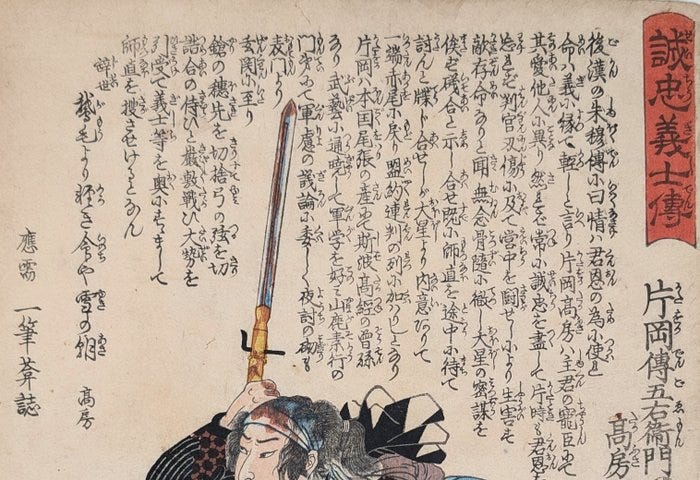 誠忠義士傳
片岡傳五右衛門
高房
後漢の朱穆傳小曰情ハ君恩の為小使ハれ
命ハ義小縁て軽しと言り片岡高房ハ主君の寵臣にて
其愛他人小異り然るを常小誠忠を盡して片時も君恩を
忘れず判官刃傷小及て営中を閙せしより生害し
敵存命なりと聞無念骨髄小徹し大星の密謀を
俟ず礒合と示し合せ既小師直を途中小待て
討んと牒し合せしが大星より内意なりて
一端赤尾小戻り盟約連判の列小加ハりしとあり
片岡ハ本国尾張の産にて斯波高経の曽孫
なり武藝小通暁して軍学を好み山鹿素行の
門にて軍慮の議論小委し夜討の砌も
表門より
玄関小至り
鎗の穂先を切捨弓の弦を切
詰合の侍ひと厳敷戦ひ大勢を
引受て義士等を奥小すゝまして
師直を捜させけるとなん
辞世
鵞毛より軽き命や雪の朝
高房
應需
一筆葊誌